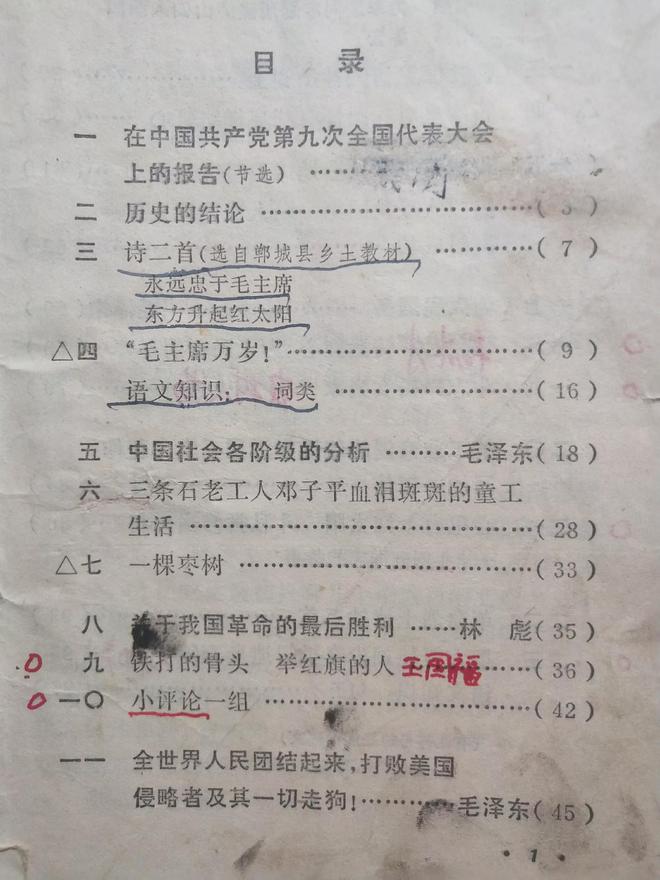 目 录
一 在中国共产党第九次全国代表大会
上的报告(节选) ……
二 历史的结论 ……………………………( 3 )
三 诗二首(选自郸城县乡土教材) …………( 7 )
永远忠于毛主席
东方升起红太阳
△四 “毛主席万岁!”…………………………( 9 )
语文知识: 词类 ……………………( 16 )
五 中国社会各阶级的分析 ………毛泽东( 18 )
六 三条石老工人邓子平血泪斑斑的童工
生活 …………………………………( 28 )
△七 一棵枣树 ……………………………( 33 )
八 关于我国革命的最后胜利 ……林 彪( 35 )
九 铁打的骨头 举红旗的人 王国福 ……( 36 )
一〇 小评论一组 …………………………( 42 )
一一 全世界人民团结起来,打败美国
侵略者及其一切走狗!…………毛泽东( 45 )
· 1 ·